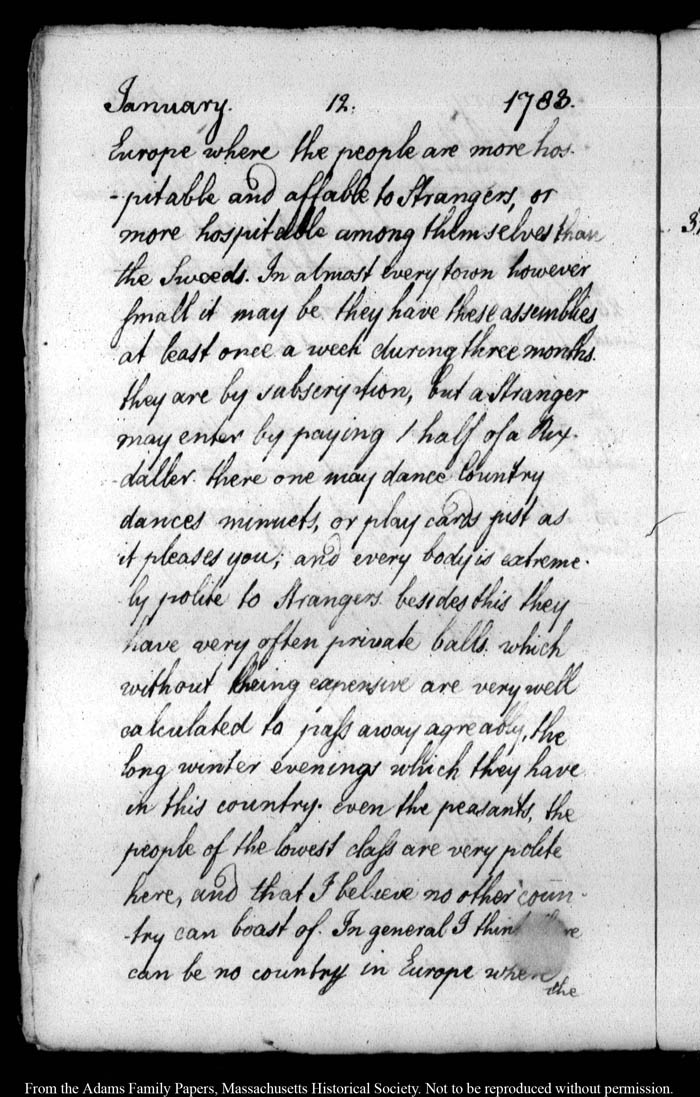 January. 12. 1783.
Europe where the people are more hos-
-pitable and affable to Strangers, or
more hospitable among themselves than
the Sweeds. In almost every town however
small it may be they have these assemblies
at least once a week during three months.
they are by subscription, but a Stranger
may enter by paying 1 half of a Rix-
daller there one may dance Country
dances minuets, or play cards just as
it pleases you; and every body is extreme-
ly polite to Strangers besides this they
have very often private balls which
without being expensive are very well
calculated to pass away agreably, the
long winter evenings which they have
in this country. even the peasants, the
people of the lowest class are very polite
here, and that I believe no other coun-
-try can boast of. In general I think
can be no country in Europe where
the
From the Adams Family Papers, Massachusetts Historical Society. Not to be reproduced without permission.